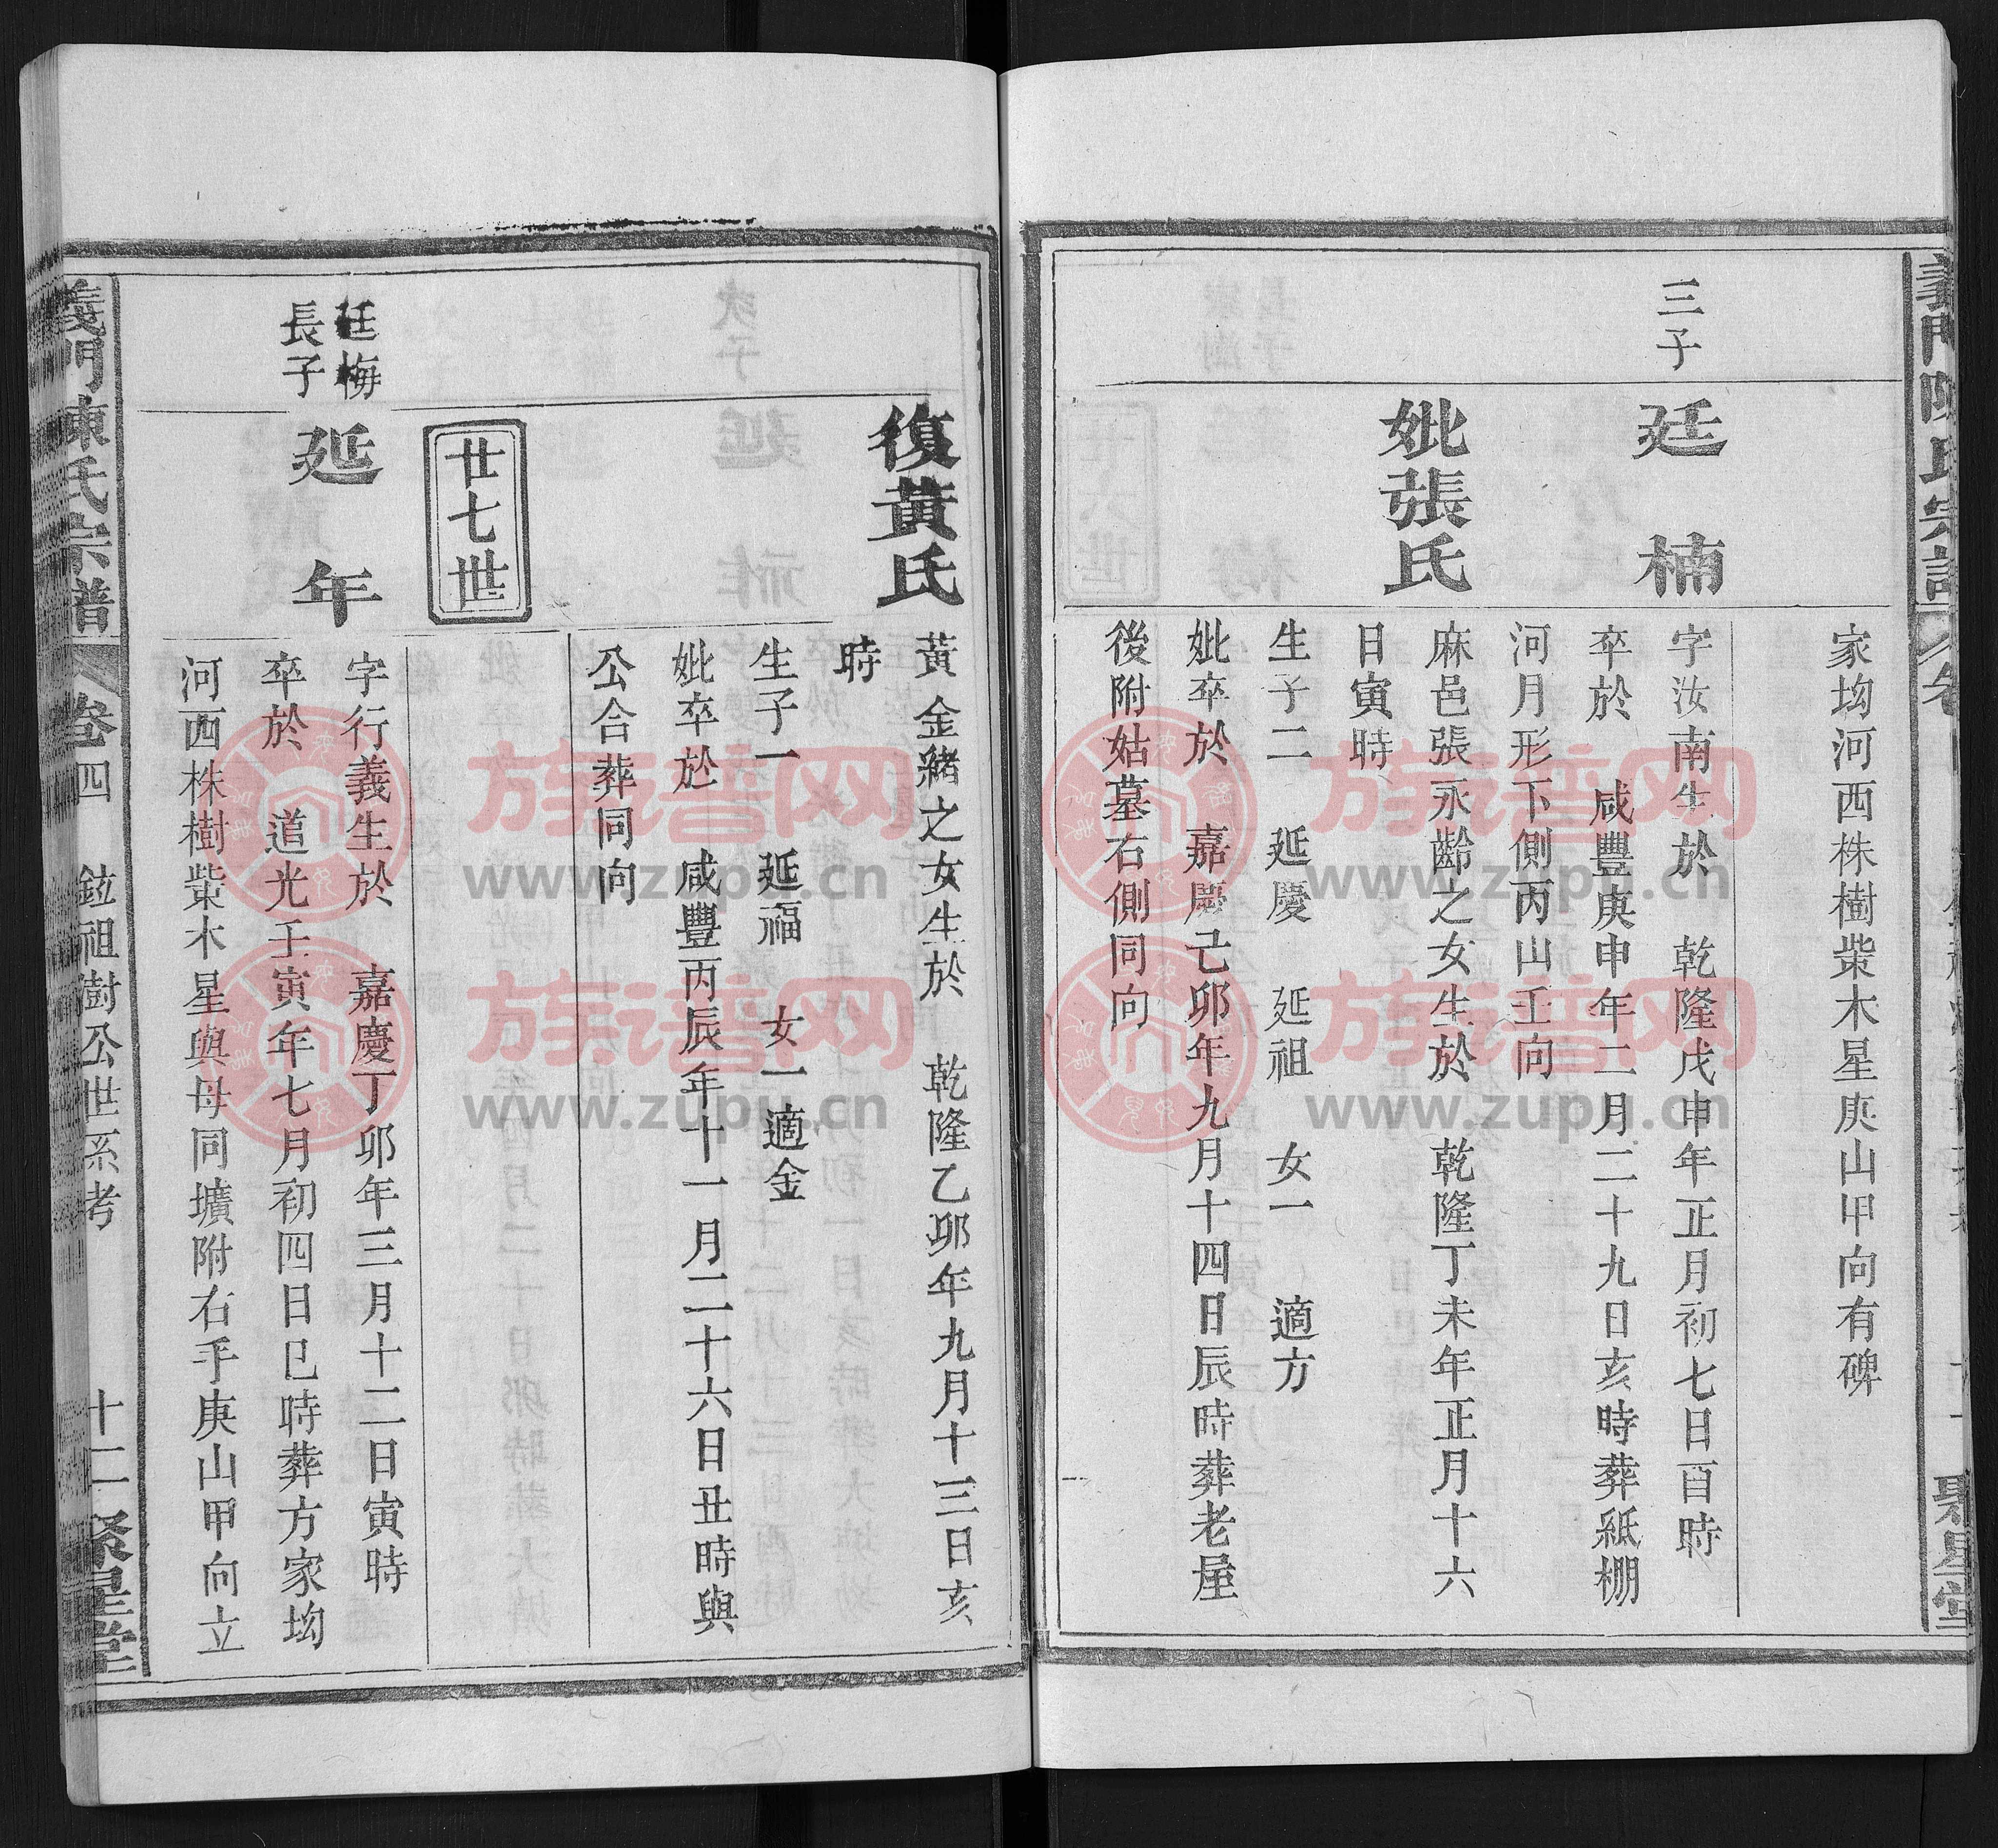 家坳河西株樹柴木星庚山甲向有碑
三子
廷楠
字汝南生於 乾隆戊申年正月初七日酉時
卒於 咸豐庚申年二月二十九日亥時葬紙棚
河月形下側丙山壬向
妣張氏
麻邑張永齡之女生於 乾隆丁未年正月十六
日寅時
生子二 延慶 延祖 女一 適方
妣卒於 嘉慶己卯年九月十四日辰時葬老屋
後附姑墓右側同向
復黃氏
黃金緒之女生於 乾隆乙卯年九月十三日亥
時
生子一 延福 女一適金
妣卒於 咸豐丙辰年十一月二十六日丑時與
公合葬同向
廿七世
廷梅
長子
延年
字行義生於 嘉慶丁卯年三月十二日寅時
卒於 道光壬寅年七月初四日巳時葬方家坳
河西株樹柴木星與母同壙附右手庚山甲向立
義門陳氏宗譜 卷四 鉉祖澍公世系考 十二 聚星堂
族谱网
www.zupu.cn
族谱网
www.zupu.cn
族谱网
www.zupu.cn
族谱网
www.zupu.cn